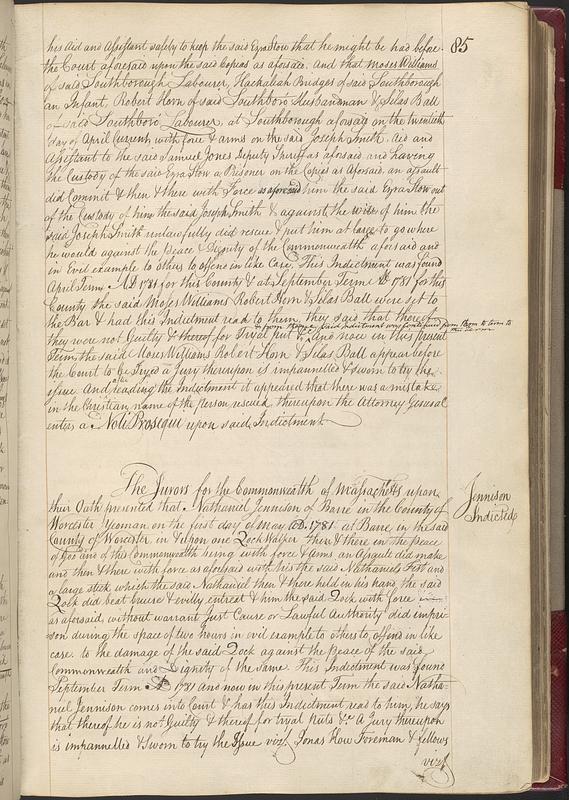 85
his Aid and Assistant safely to keep the said Ezra Stow that he might be had before
the Court aforesaid upon the said Copias as aforesaid. And that Moses Williams
of said Southborough Labourer, Hackaliah Bridges of said Southborough
an Infant, Robert Horn of said Southboro Husbandman & Silas Ball
of said Southboro Labourer, at Southborough aforesaid on the twentieth
day of April Current, with force & arms on the said Joseph Smith Aid and
Assistant to the said Samuel Jones Deputy Sheriff as aforesaid and having
the Custody of the said Ezra Stow a Prisoner on the Copias as aforesaid, an assault
did Commit & then & there with Force as aforesaid him the said Ezra Stow out
of the Custody of him the said Joseph Smith & against the will of him the
said Joseph Smith unlawfully did rescue & put him at large to go where
he would against the Peace & Dignity of the Commonwealth aforesaid and
in Evil example to others to offend in like Case. This Indictment was found
April Term AD 1781 for this County & at September Term AD 1781 for this
County the said Moses Williams Robert Horn & Silas Ball were set to
the Bar & had this Indictment read to them, they said that thereof
they were not Guilty & thereof for Tryal put &c. And now in this present
& from thence said Indictment was continued from Term to term to this Term
Term the said Moses Williams Robert Horn & Silas Ball appear before
the Court to be Tryed a Jury thereupon is impannelled & sworn to try the
issue. And reading the Indictment it appeared that there was a mistake
in the Christian name of the Person rescued, thereupon the Attorney General
enters a Noli Prosequi upon said Indictment
The Jurors for the Commonwealth of Massachetts upon
their Oath presented that Nathaniel Jennison of Barre in the County of
Worcester Yeoman on the first day of May AD. 1781 at Barre in the said
County of Worcester in & upon one Qock Walker then & there in the peace
of God and of this Commonwealth being with force & arms an Assault did make
and then & there with force as aforesaid with his the said Nathaniels Fist and
a large stick which the said Nathaniel then & there held in his hand the said
Qock did beat bruise & evilly entreat & him the said Qock with force
as aforesaid, without warrant Just Cause or Lawful Authority did impri-
son during the space of two hours in evil example to others to offend in like
case to the damage of the said Qock against the Peace of the said
Commonwealth and Dignity of the same. This Indictment was found
September Term AD 1781 And now in this present Term the said Natha-
niel Jennison comes into Court & has this Indictment read to him, he says
that thereof he is not Guilty & thereof for tryal puts &c. A Jury thereupon
is impannelled & Sworn to try the Issue vizt. Jonas How Foreman & fellows
vizt
Jennison
Indicted